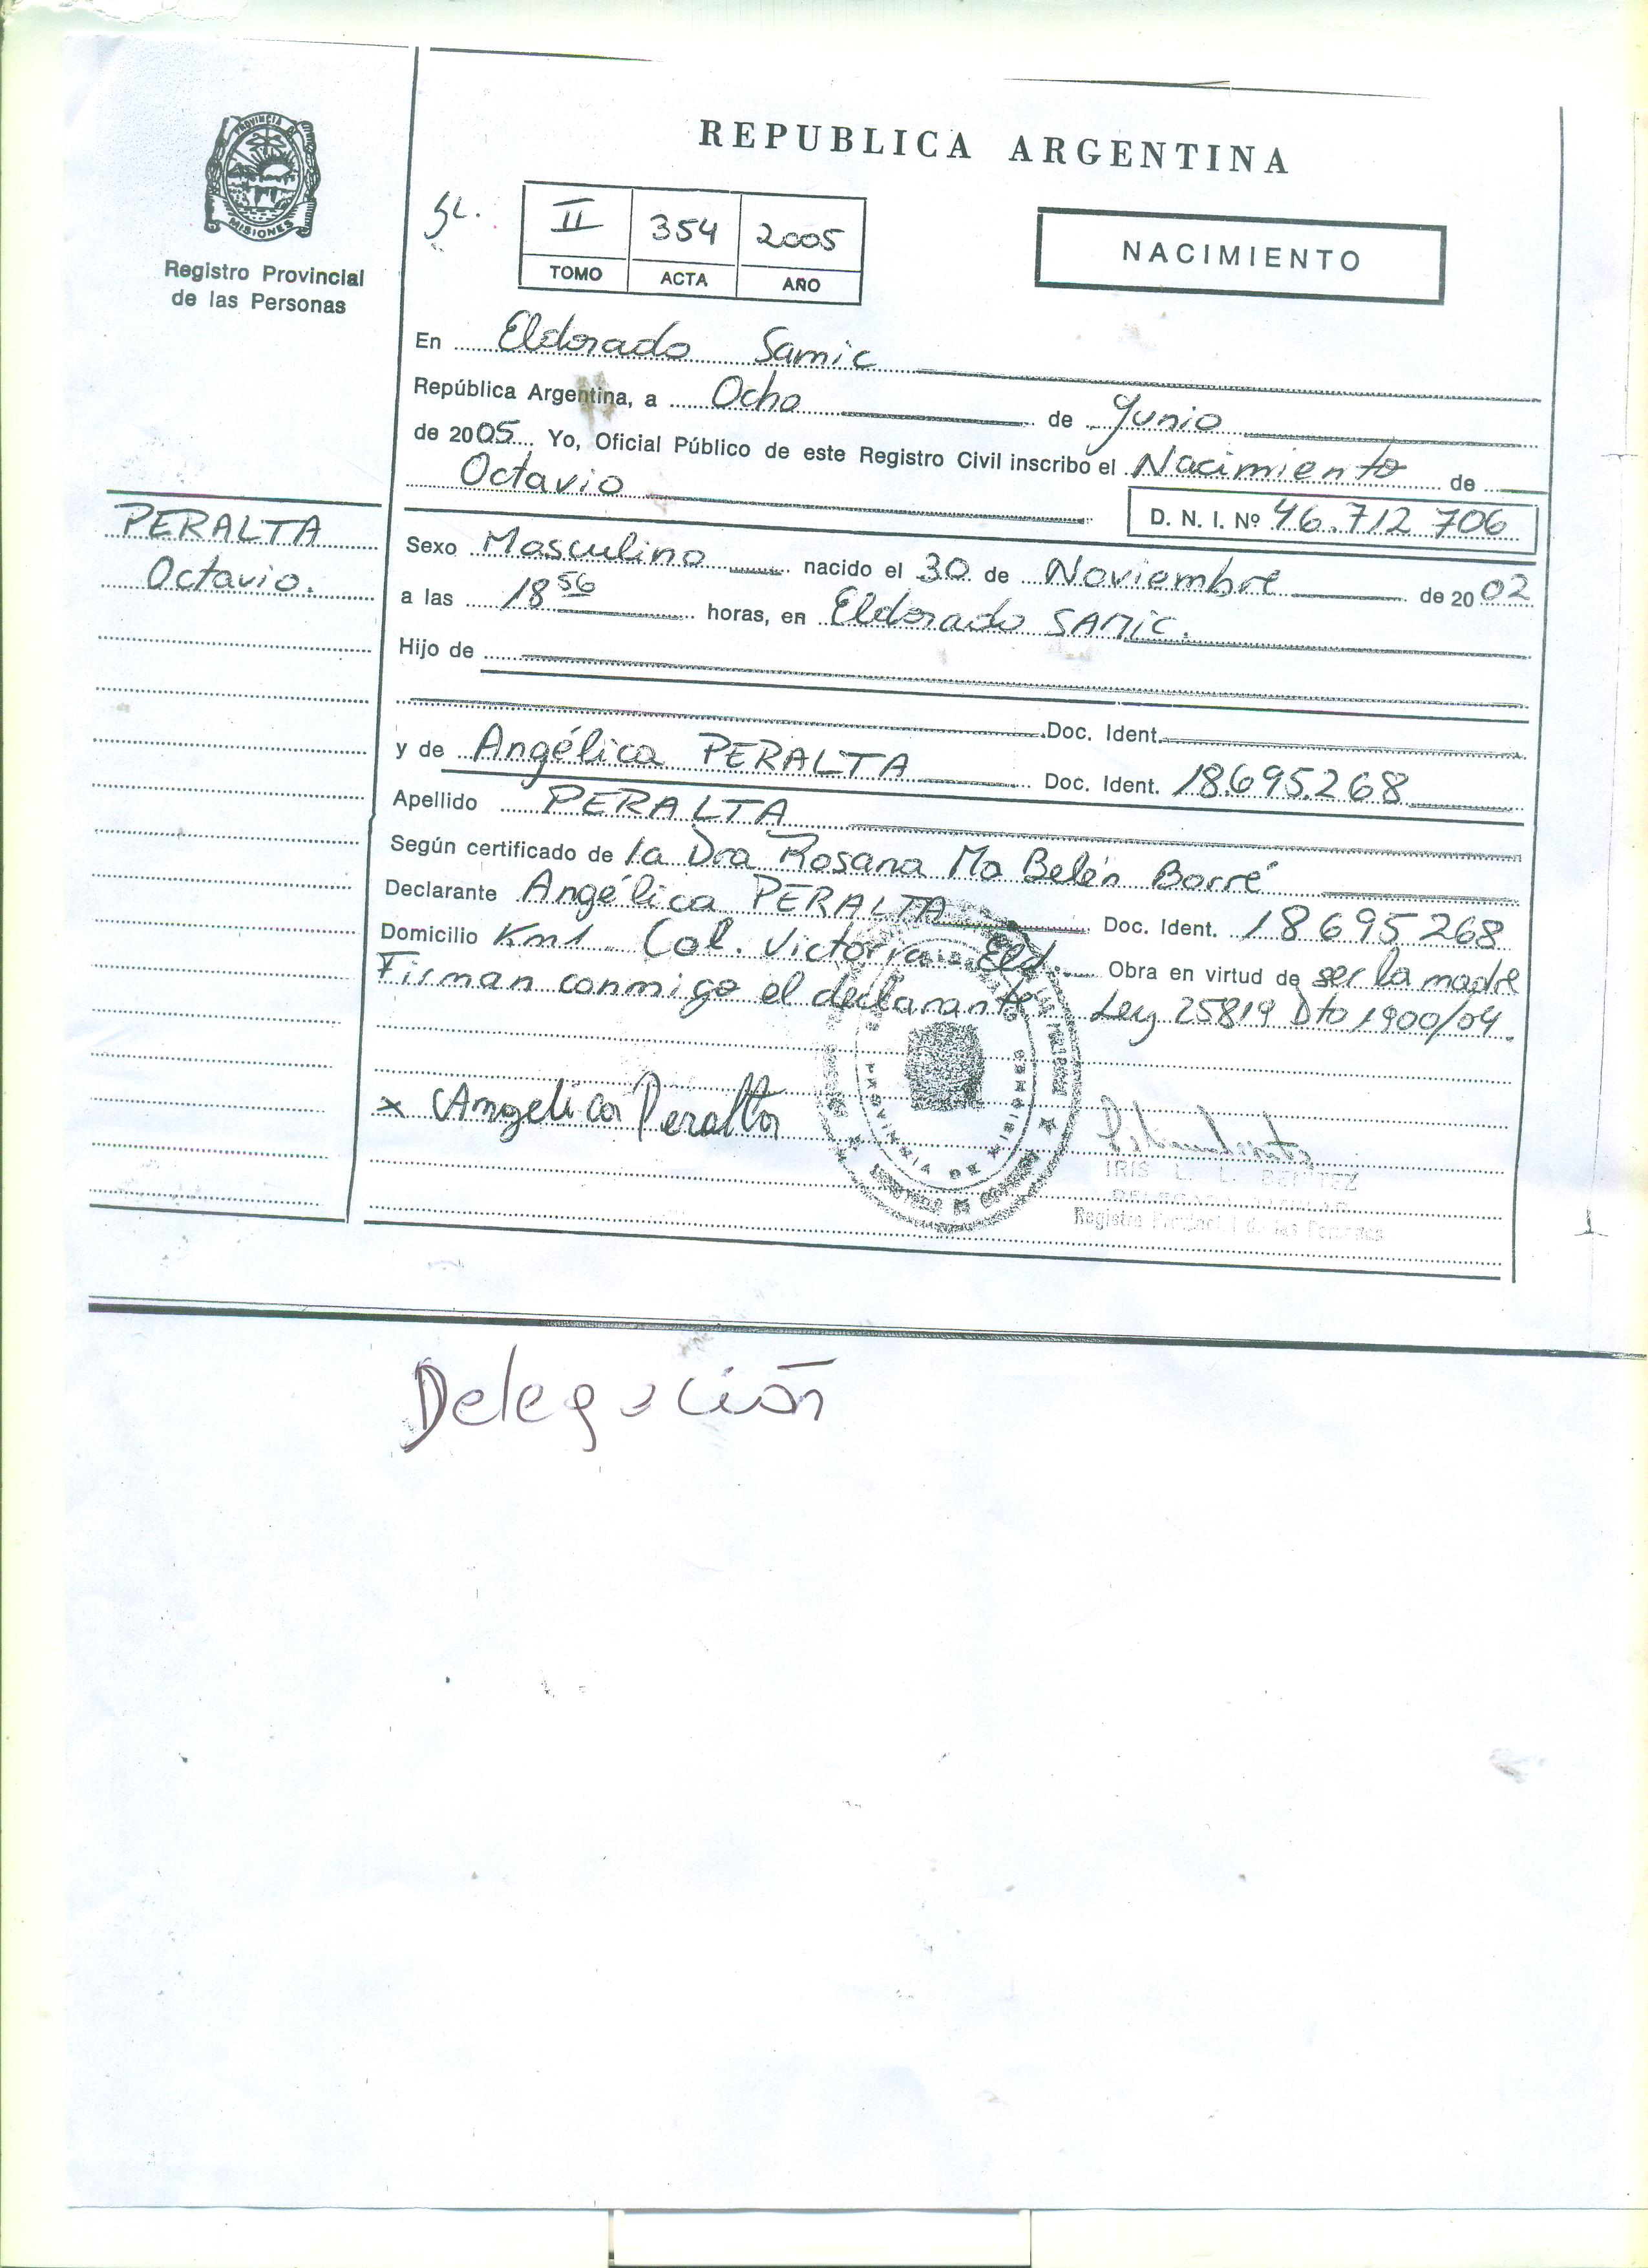 REPUBLICA ARGENTINA
PROVINCIA D
MISIONES
Registro Provincial
de las Personas
II 354 2005
TOMO ACTA AÑO
NACIMIENTO
En Eldorado Samic
República Argentina, a Ocho de Junio
de 2005 Yo, Oficial Público de este Registro Civil inscribo el Nacimiento de
Octavio
D. N. I. Nº 46.712 706
PERALTA
Octavio.
Sexo Masculino nacido el 30 de Noviembre de 2002
a las 18 56 horas, en Eldorado SAMIC.
Hijo de
Doc. Ident.
y de Angélica PERALTA Doc. Ident. 18.695.268
Apellido PERALTA
Según certificado de la Dra Rosana Ma Belén Borré
Declarante Angélica PERALTA Doc. Ident. 18695268
Domicilio Km1 Col. Victoria Eld. Obra en virtud de ser la madre
Firman conmigo el declarante Ley 25819 Dto 1900/04.
x Angelica Peralta
PROVINCIA DE MISIONES
IRIS L. L. BENITEZ
Registro Provincial de las Personas
Delegación